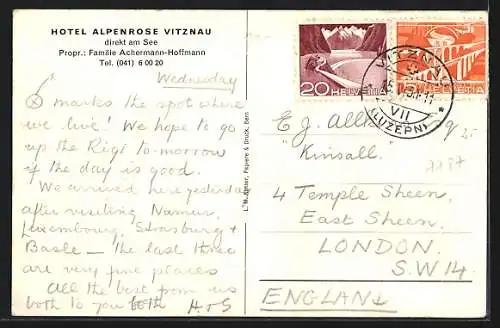 HOTEL ALPENROSE VITZNAU
direkt am See
Propr.: Familie Achermann-Hoffmann
Tel. (041) 6 00 20
Wednesday
⊗ marks the spot where
we live! We hope to go
up the Rigi to-morrow
if the day is good.
We arrived here yesterday
after visiting Namur,
Luxembourg, Strasburg +
Basle – the last three
are very fine places
All the best from us
both to you both H+S
20 HELVETIA
HELVETIA
VITZNAU
VII
(LUZERN)
E.J.
"Kinsall"
4 Temple Sheen,
East Sheen,
LONDON.
S.W 14.
ENGLAND